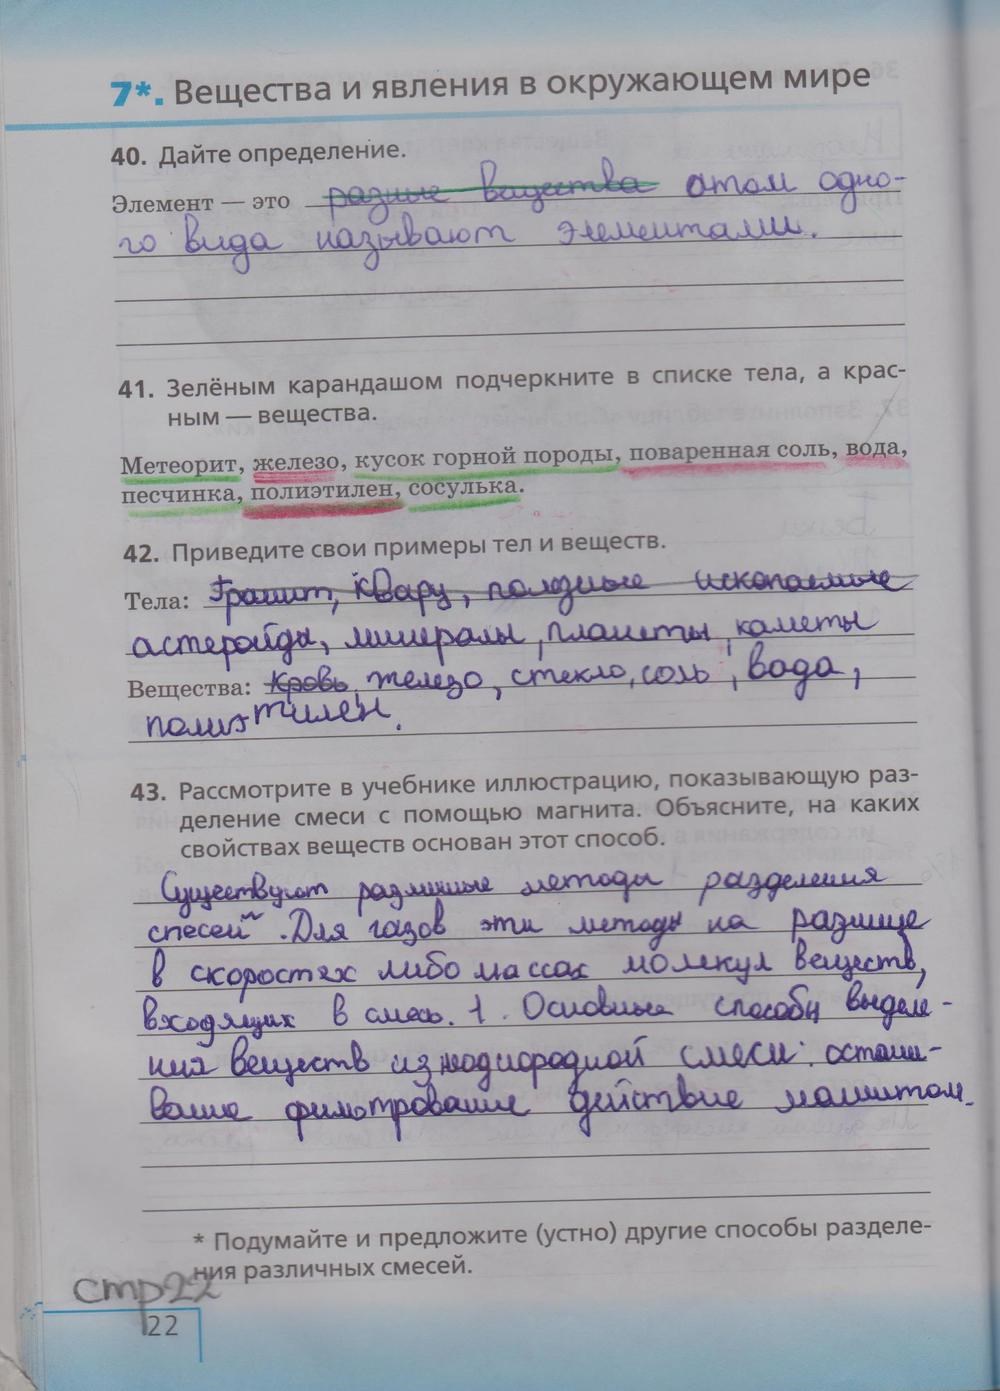 7*. Вещества и явления в окружающем мире
40. Дайте определение.
Элемент — это разные вещества атом одно-
го вида называют элементами.
41. Зелёным карандашом подчеркните в списке тела, а крас-
ным — вещества.
Метеорит, железо, кусок горной породы, поваренная соль, вода,
песчинка, полиэтилен, сосулька.
42. Приведите свои примеры тел и веществ.
Тела: Гранит, кварц, полезные ископаемые
астеройды, минералы, планеты, каметы
Вещества: кровь, железо, стекло, соль, вода,
полиэтилен.
43. Рассмотрите в учебнике иллюстрацию, показывающую раз-
деление смеси с помощью магнита. Объясните, на каких
свойствах веществ основан этот способ.
Существуют различные методы разделения
спесей. Для газов эти методы на разнице
в скоростях либо массах молекул веществ,
входящих в смесь. 1. Основные способы выделе-
ния веществ из неоднородной смеси: остаи-
вание фильтрование действие магнитом.
* Подумайте и предложите (устно) другие способы разделе-
ния различных смесей.
стр22
22